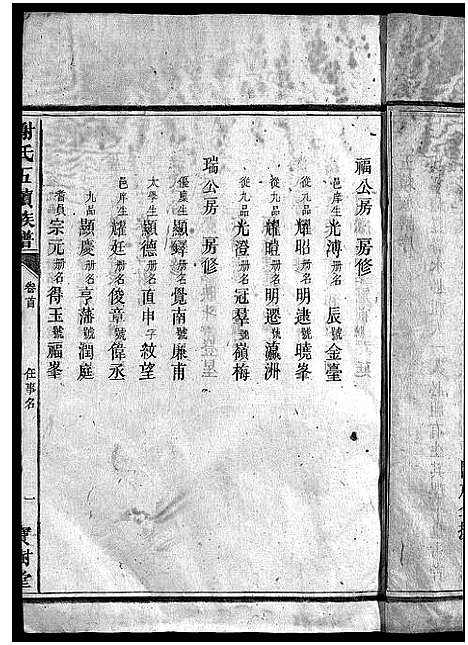 福公房 房修
邑庠生光溥册名辰號金臺
從九品耀昭册名明逮號曉峯
從九品耀暄册名明遷號瀛洲
從九品光澄册名冠羣號嶺梅
瑞公房 房修
優廪生顯鐸册名覺南號廉甫
太學生顯德册名直申字紋望
邑庠生耀廷册名俊章號偉丞
九品顯慶册名亨藩號潤庭
耆員宗元册名得玉號福峯
謝氏五續族譜
卷首
任事名
一
寶樹堂